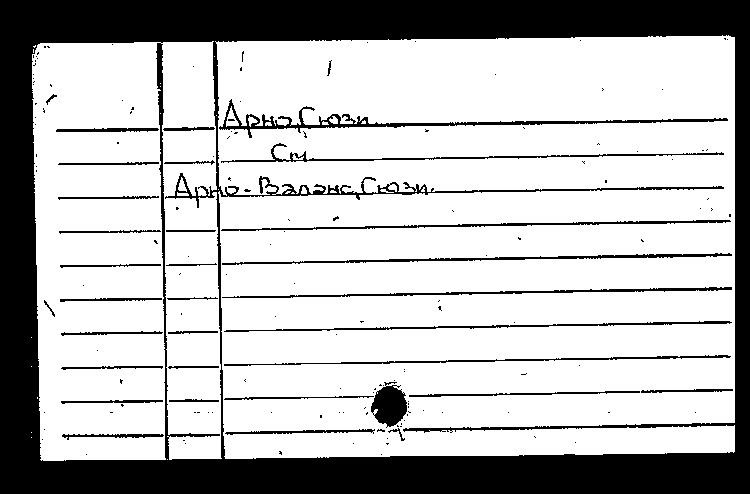 Арно, Сюзи.
См.
Арно-Валанс, Сюзи.